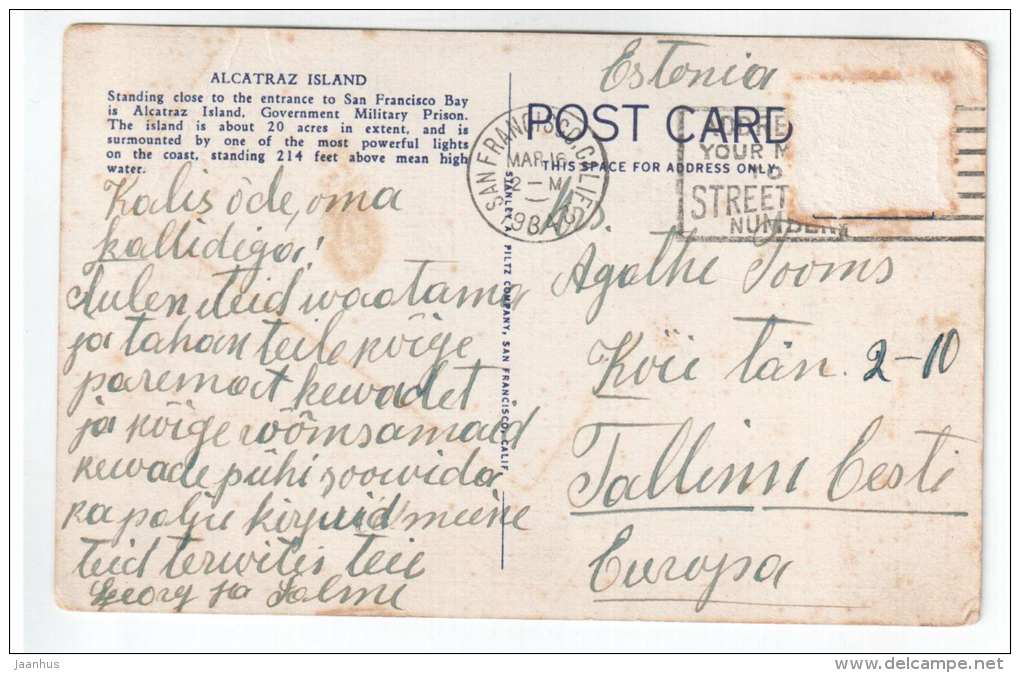 ALCATRAZ ISLAND
Standing close to the entrance to San Francisco Bay
is Alcatraz Island, Government Military Prison.
The island is about 20 acres in extent, and is
surmounted by one of the most powerful lights
on the coast, standing 214 feet above mean high
water.
Kalis õde, oma
kallidega!
Tulen teid waatama
ja tahan teile kõige
paremat kewadet
ja kõige rõõmsamaid
kewade pühi soowida
ka palju kirjuid mune
teid terwitis teie
Georg ja Salme
STANLEY A PILTZ COMPANY, SAN FRANCISCO, CALIF
Estonia
POST CARD
THIS SPACE FOR ADDRESS ONLY
SAN FRANCISCO, CALIF.
MAR 16
YOUR M
TO
STREET
NUMBER
Agathe Tooms
Köie tän. 2-10
Tallinn Eesti
Europa
Jaanhus
www.delcampe.net